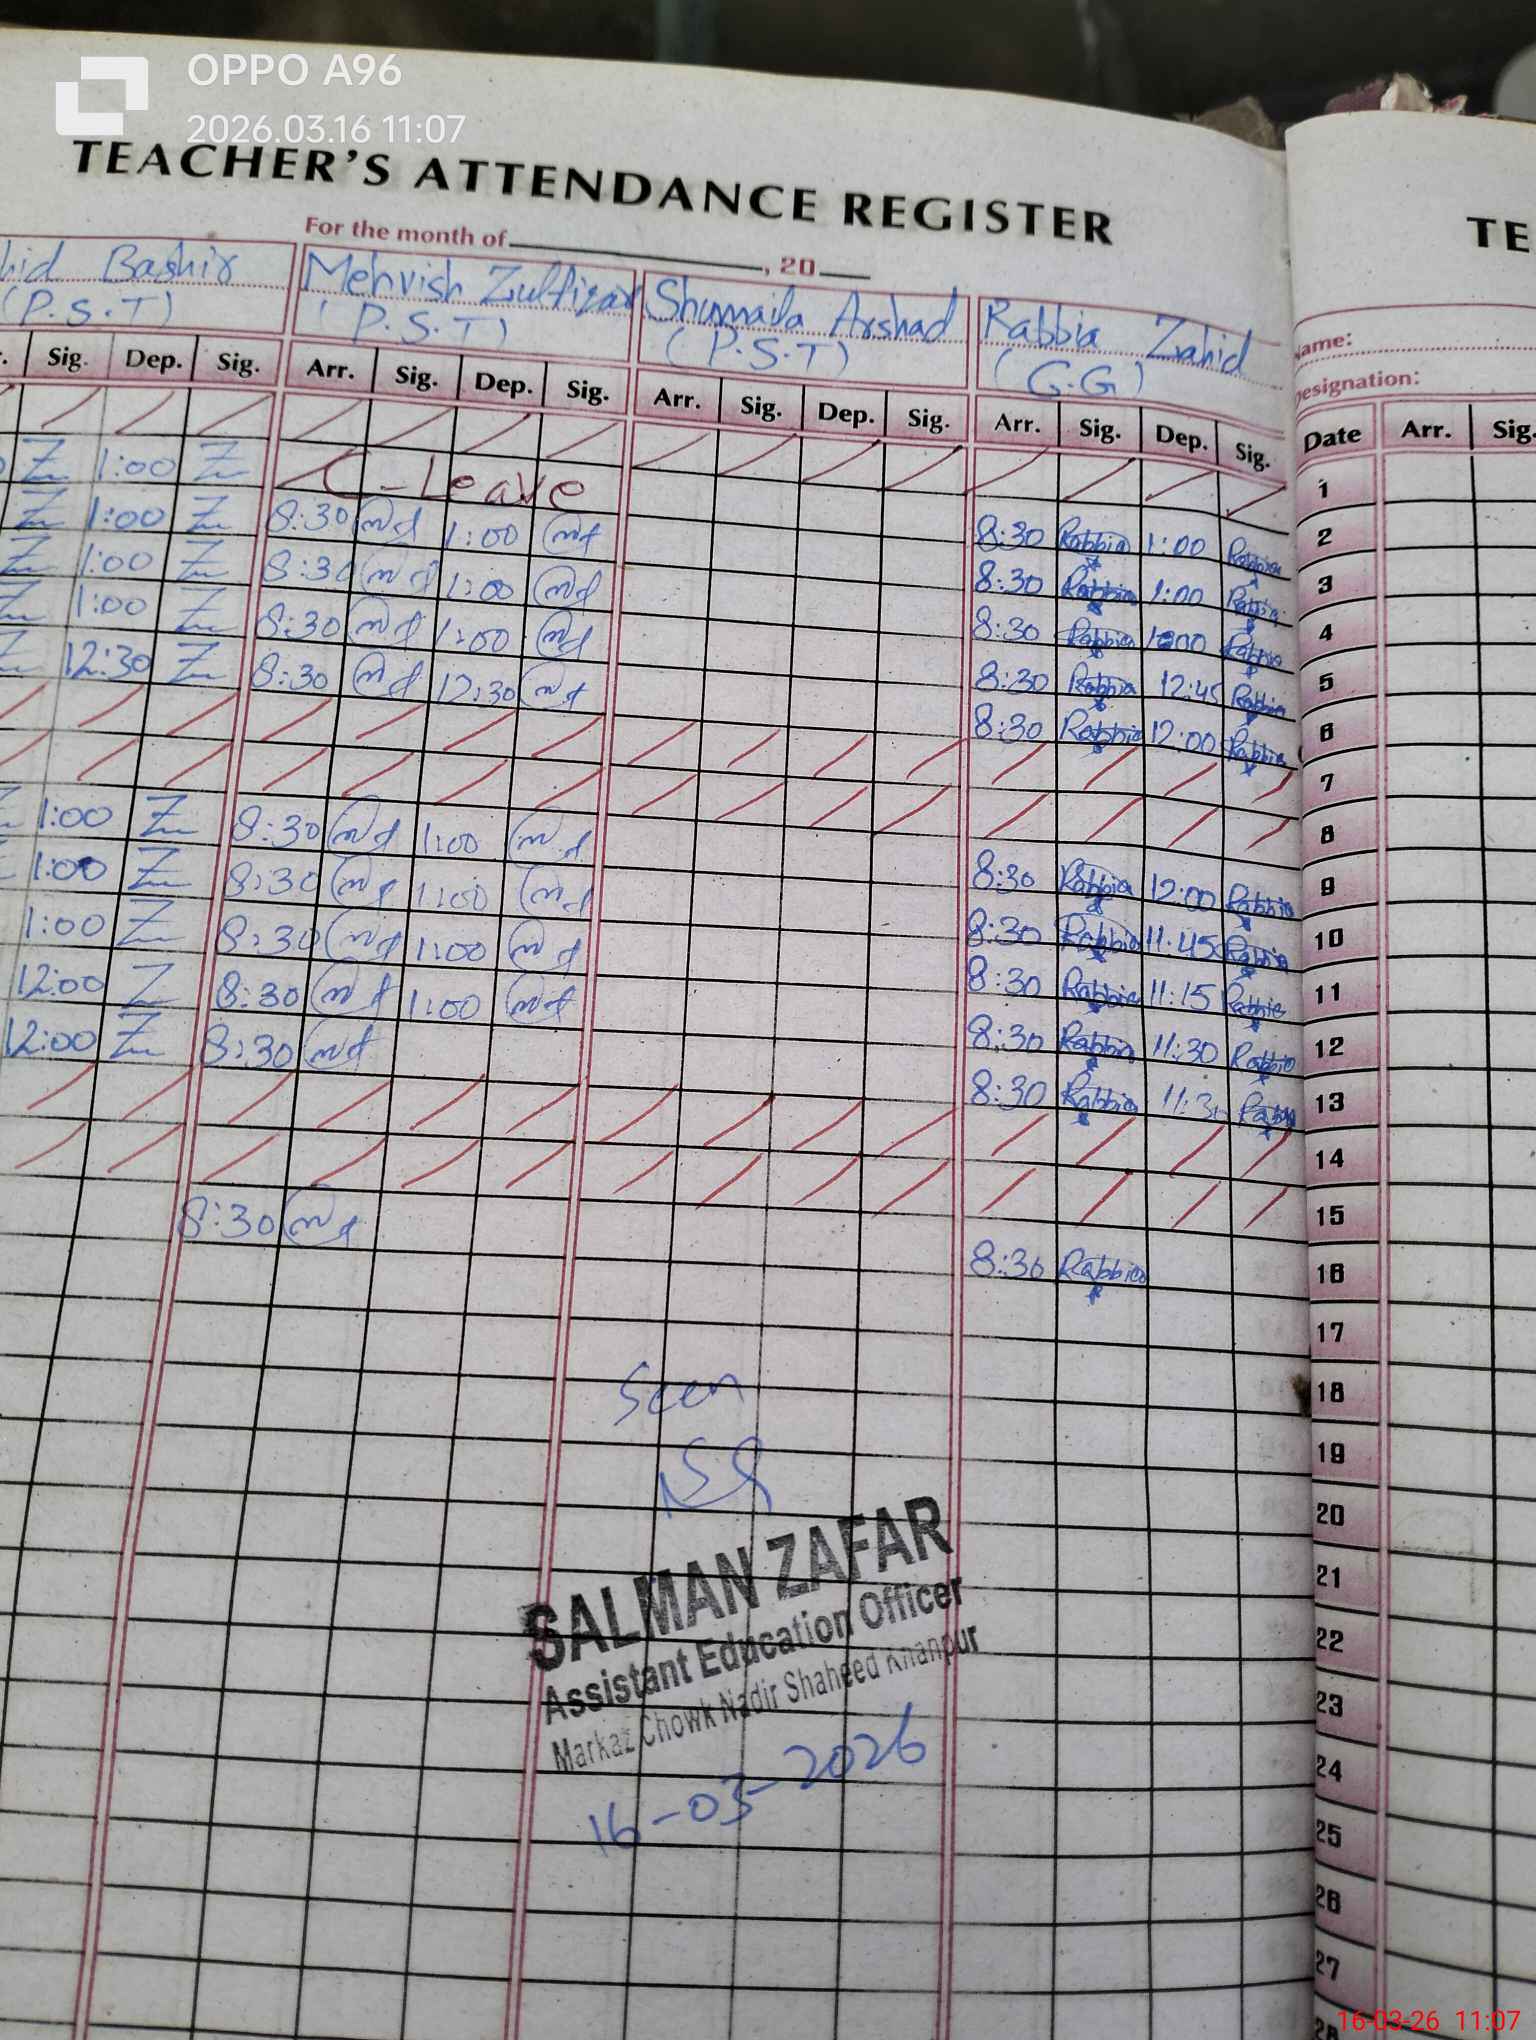 OPPO A96
2026.03.16 11:07
TEACHER'S ATTENDANCE REGISTER
TE
For the month of , 20
hid Bashir Mehvish Zulfiqar Shumaila Arshad Rabbia Zahid
(P.S.T) (P.S.T) (P.S.T) (G.G)
Name:
Designation:
Sig. Dep. Sig. Arr. Sig. Dep. Sig. Arr. Sig. Dep. Sig. Arr. Sig. Dep. Sig. Date Arr. Sig.
1
1:00 C-Leave 8:30 Rabbia 1:00 Rabbia 2
1:00 8:30 1:00 8:30 Rabbia 1:00 Rabbia 3
1:00 8:30 1:00 8:30 Rabbia 1:00 Rabbia 4
1:00 8:30 1:00 8:30 Rabbia 12:45 Rabbia 5
12:30 8:30 12:30 8:30 Rabbia 12:00 Rabbia 6
7
8
1:00 8:30 1:00 8:30 Rabbia 12:00 Rabbia 9
1:00 8:30 1:00 8:30 Rabbia 11:45 Rabbia 10
1:00 8:30 1:00 8:30 Rabbia 11:15 Rabbia 11
12:00 8:30 1:00 8:30 Rabbia 11:30 Rabbia 12
12:00 8:30 8:30 Rabbia 11:3 Rabbia 13
14
15
8:30 8:30 Rabbia 16
17
Seen 18
19
20
SALMAN ZAFAR 21
Assistant Education Officer 22
Markaz Chowk Nadir Shaheed Khanpur 23
16-03-2026 24
25
26
27
28
16-03-26 11:07